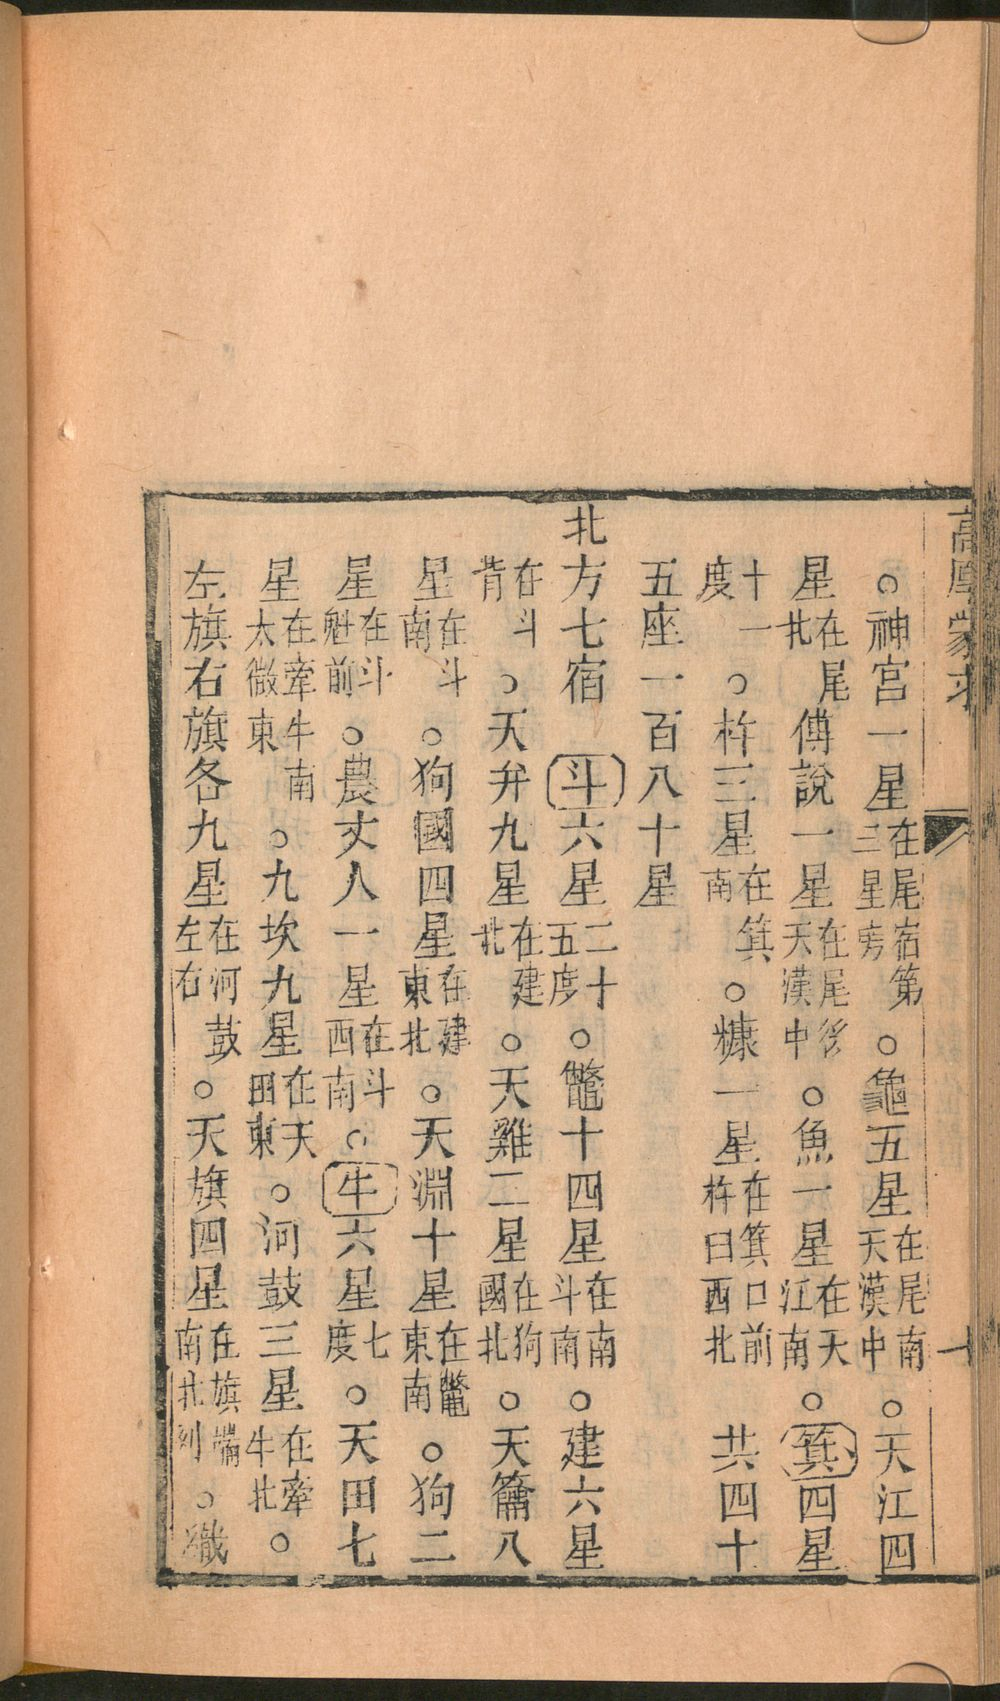 高厚蒙求
十
○神宮一星在尾宿第三星旁○龜五星在尾南天漢中○天江四
星在尾北傅說一星在尾後天漢中○魚一星在天江南○箕四星
十一度○杵三星在箕南○糠一星在箕口前杵臼西北 共四十
五座一百八十星
北方七宿 斗六星二十五度○鼈十四星在南斗南○建六星
在斗背○天弁九星在建北○天雞二星在狗國北○天籥八
星在斗南○狗國四星在建東北○天淵十星在鼈東南○狗二
星在斗魁前○農丈人一星在斗西南○牛六星七度○天田七
星在牽牛南太微東○九坎九星在天田東○河鼓三星在牽牛北○
左旗右旗各九星在河鼓左右○天旗四星在旗端南北列○